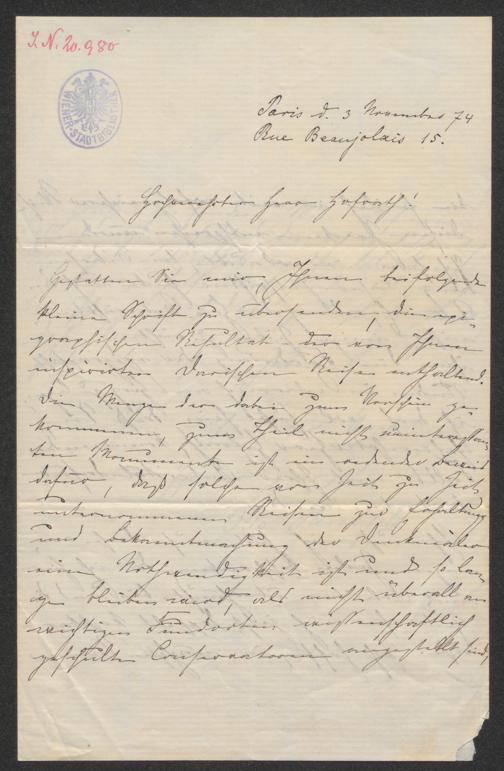 I.N. 20.980
WIENER-STADTBIBLIOTHEK
Paris d. 3 November 74
Rue Beaujolais 15.
Hochverehrter Herr Hofrath!
Gestatten Sie mir, Ihnen beifolgende
kleine Schrift zu übersenden, die epi-
graphischen Resultate der von Ihnen
inspirirten Dacischen Reise enthaltend.
Die Menge der dabei zum Vorschein ge-
kommenen, zum Theil nicht uninteressan-
ten Monumente ist ein redender Beweis
dafür, daß solche von Zeit zu Zeit
unternommenen Reisen zur Erhaltung
und Bekanntmachung der Denkmäler
eine Nothwendigkeit ist und so lan-
ge bleiben wird, als nicht überall an
wichtigen Fundorten wissenschaftlich
geschulte Conservatoren angestellt sind,